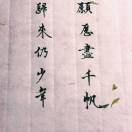 願應盡千帆
歸來仍少年